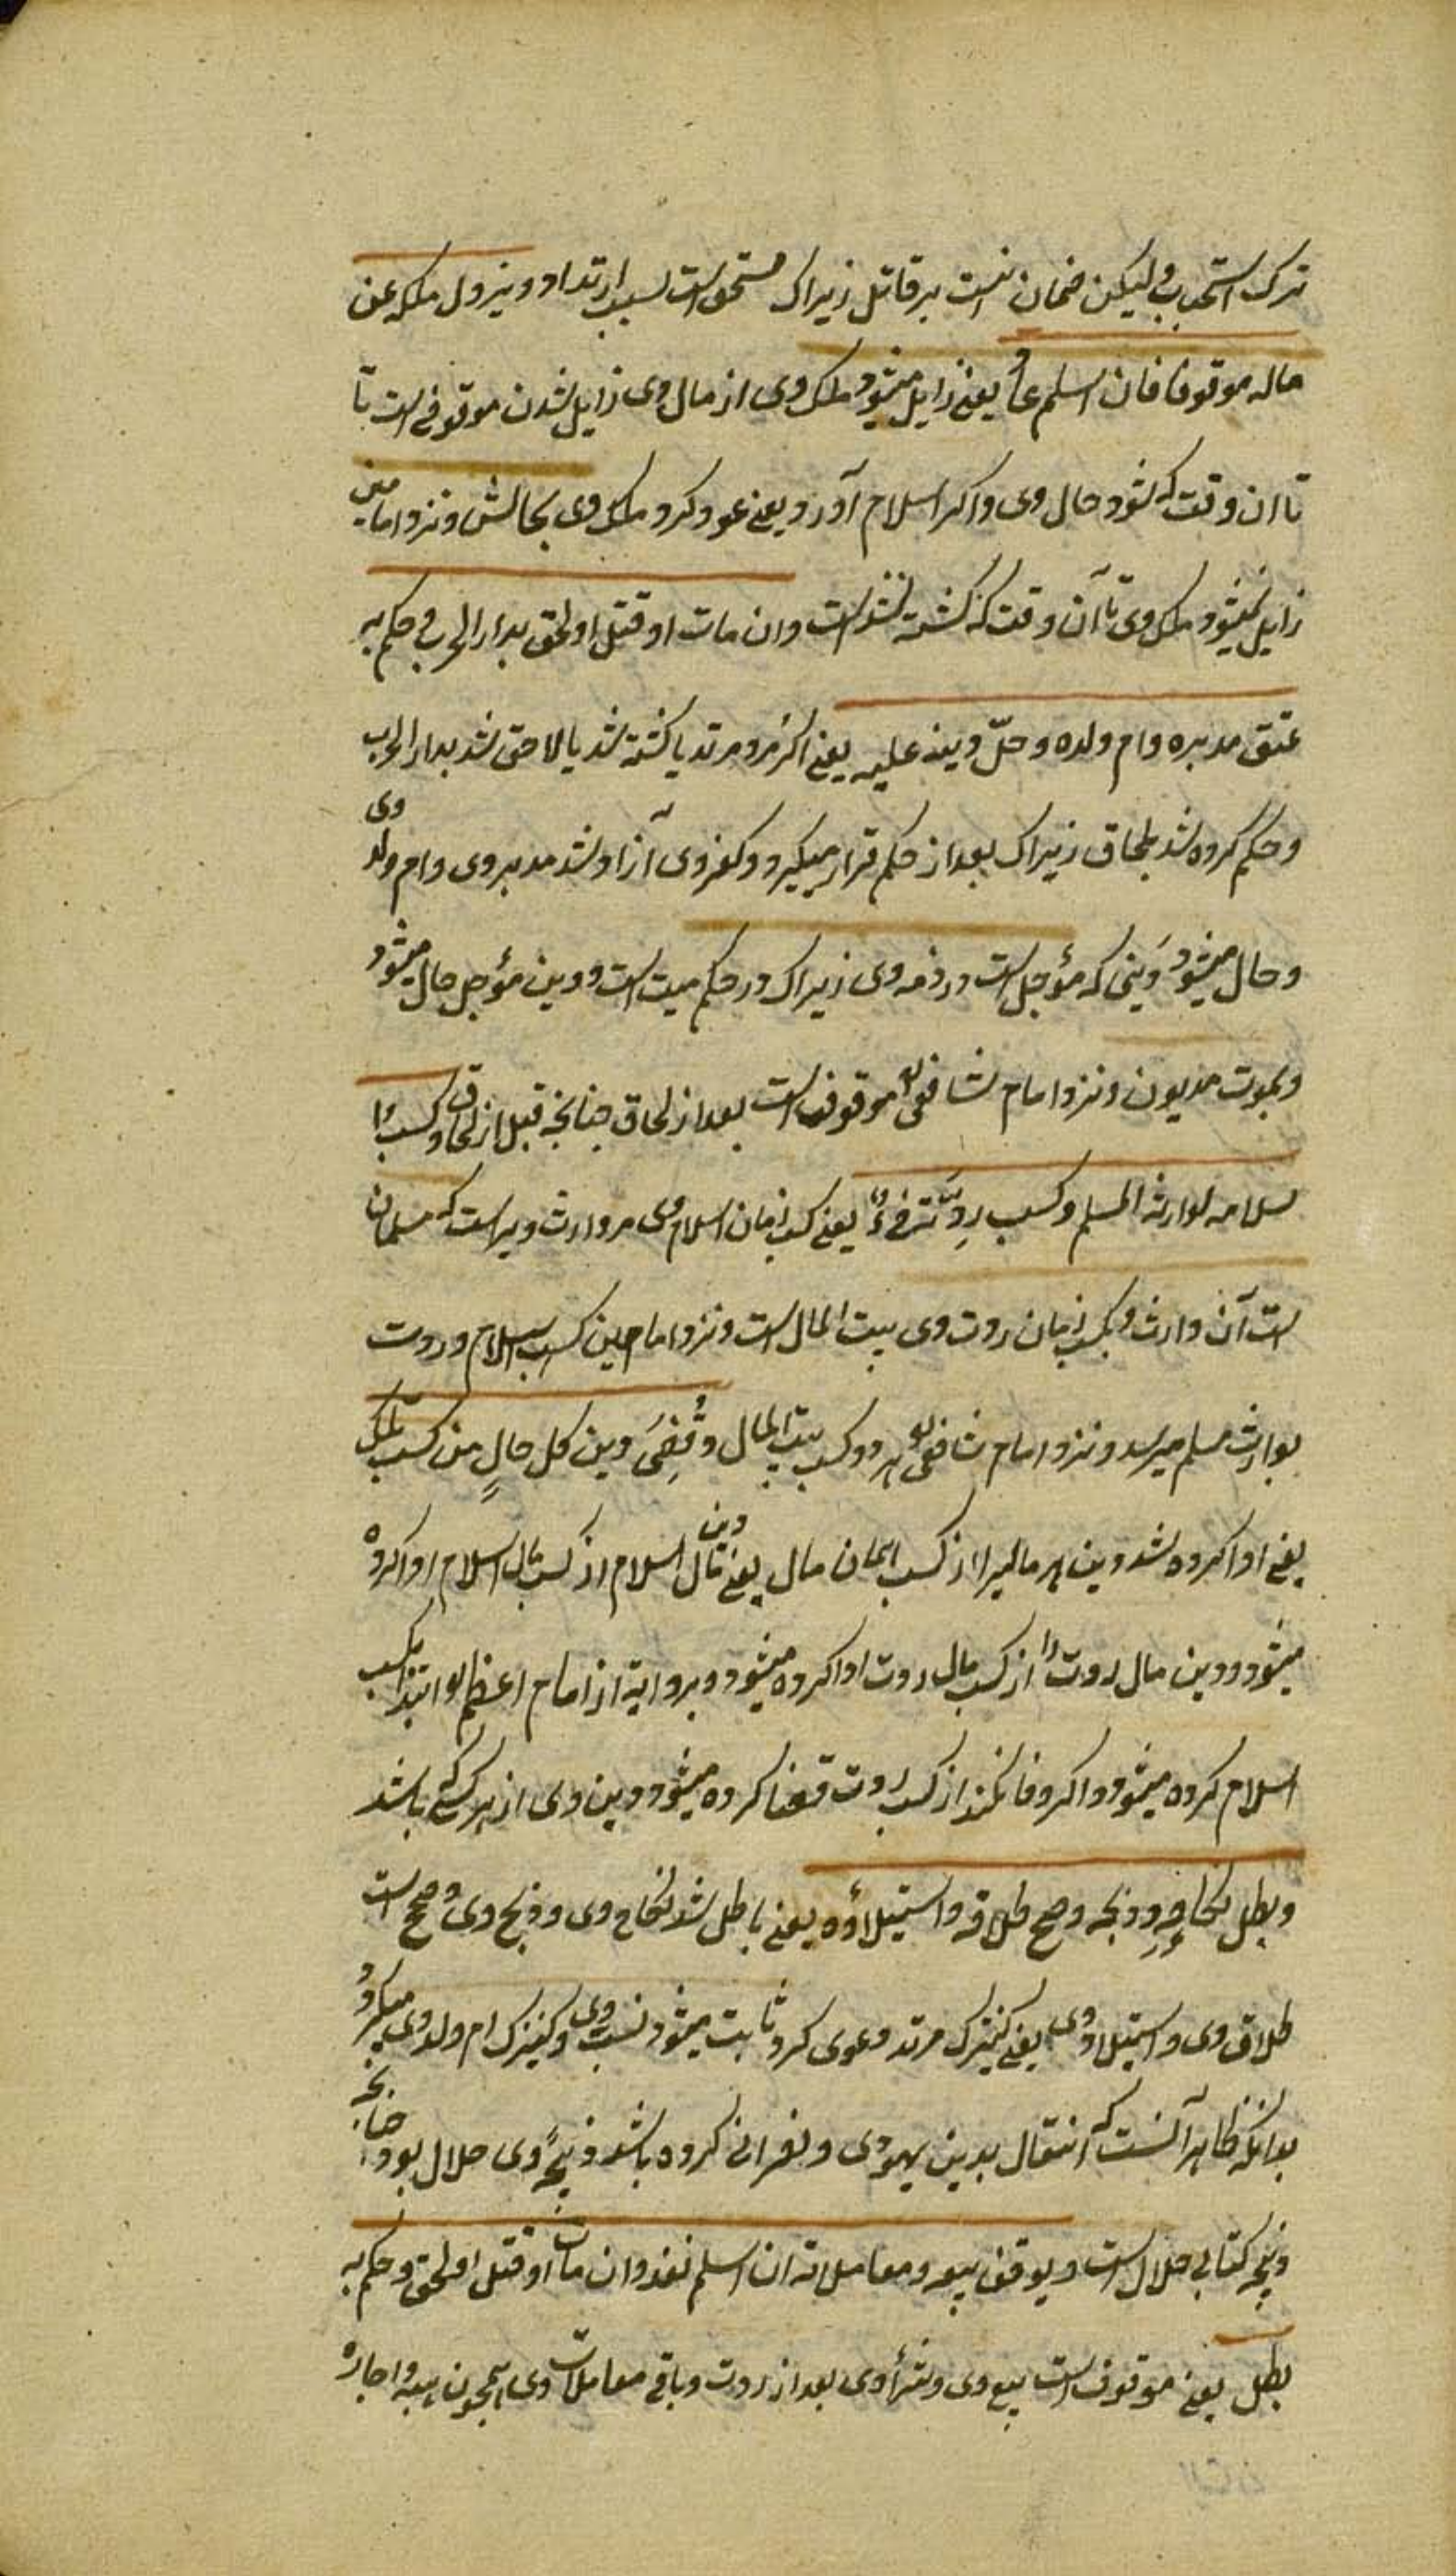 ترک استحباب ولیکن ضمان نیست بر قاتل زیراک مستحق است بسبب ارتداد ویزول ملکه عن
ماله موقوفا فان اسلم عاد یعنی زایل میشود ملک وی از مال وی زایل شدن موقوفی است تا
تا ان وقت که شود حال وی واکر اسلام آورد یعنی عود کرد ملک وی بحالش ونزد امامین
زایل نمیشود ملک وی تا آن وقت که کشته نشده است وان مات او قتل او لحق بدار الحرب وحکم به
عتق مدبره وام ولده وحلّ دین علیه یعنی اکر مرد مرتد یا کشته شد یا لاحق شد بدار الحرب
وحکم کرده شد بلحاق زیراک بعد از حکم قرار میکیرد وکفر وی آزاد شد مدبر وی وام ولد وی
وحال میشود دَینی که مؤجل است در ذمه وی زیراک در حکم میت است ودین مؤجل حال میشود
وبموت مدیون ونزد امام شافعی موقوف است بعد از لحاق چنانچه قبل از لحاق وکسب ا
سلامه لوارثه المسلم وکسب رِدّته فیءٌ یعنی کسب زمان اسلام وی مر وارث ویراست که مسلمان
است آن وارث وکسب زمان ردت وی بیت المال است ونزد امامین کسب اسلام وردت
بوارث مسلم میرسد ونزد امام شافعی هر دو کسب بیت المال وقُضِیَ دین کل حالٍ من کسب تلک
یعنی ادا کرده شد دین هر مالیرا از کسب ایمان مال یعنی دین مال اسلام از کسب مال اسلام ادا کرده
میشود ودین مال ردت را از کسب مال ردت ادا کرده میشود وبروایة از امام اعظم ابتدا بکسب
اسلام کرده میشود واکر وفا نکند از کسب ردت قضا کرده میشود دین وی از هر کسی که باشد
وبطل نکاحه وذبحه وصح طلاقه واستیلاؤه یعنی باطل شد نکاح وی وذبح وی وصحیح است
طلاق وی واستیلاد وی یعنی کنیزک مرتد دعوی کرد ثابت میشود نسب وی وکنیزک ام ولد وی میکردد
بدانکه ظاهر آنست که انتقال بدین یهودی ونصرانی کرده باشد ذبیحهٔ وی حلال بود چنانچه
ذبیحه کتابی حلال است ویوقف بیعه ومعاملاته ان اسلم نفذ وان مات او قتل او لحق وحکم به
بطل یعنی موقوف است بیع وی وشراء وی بعد از ردت وباقی معاملات وی همچون هبه واجاره